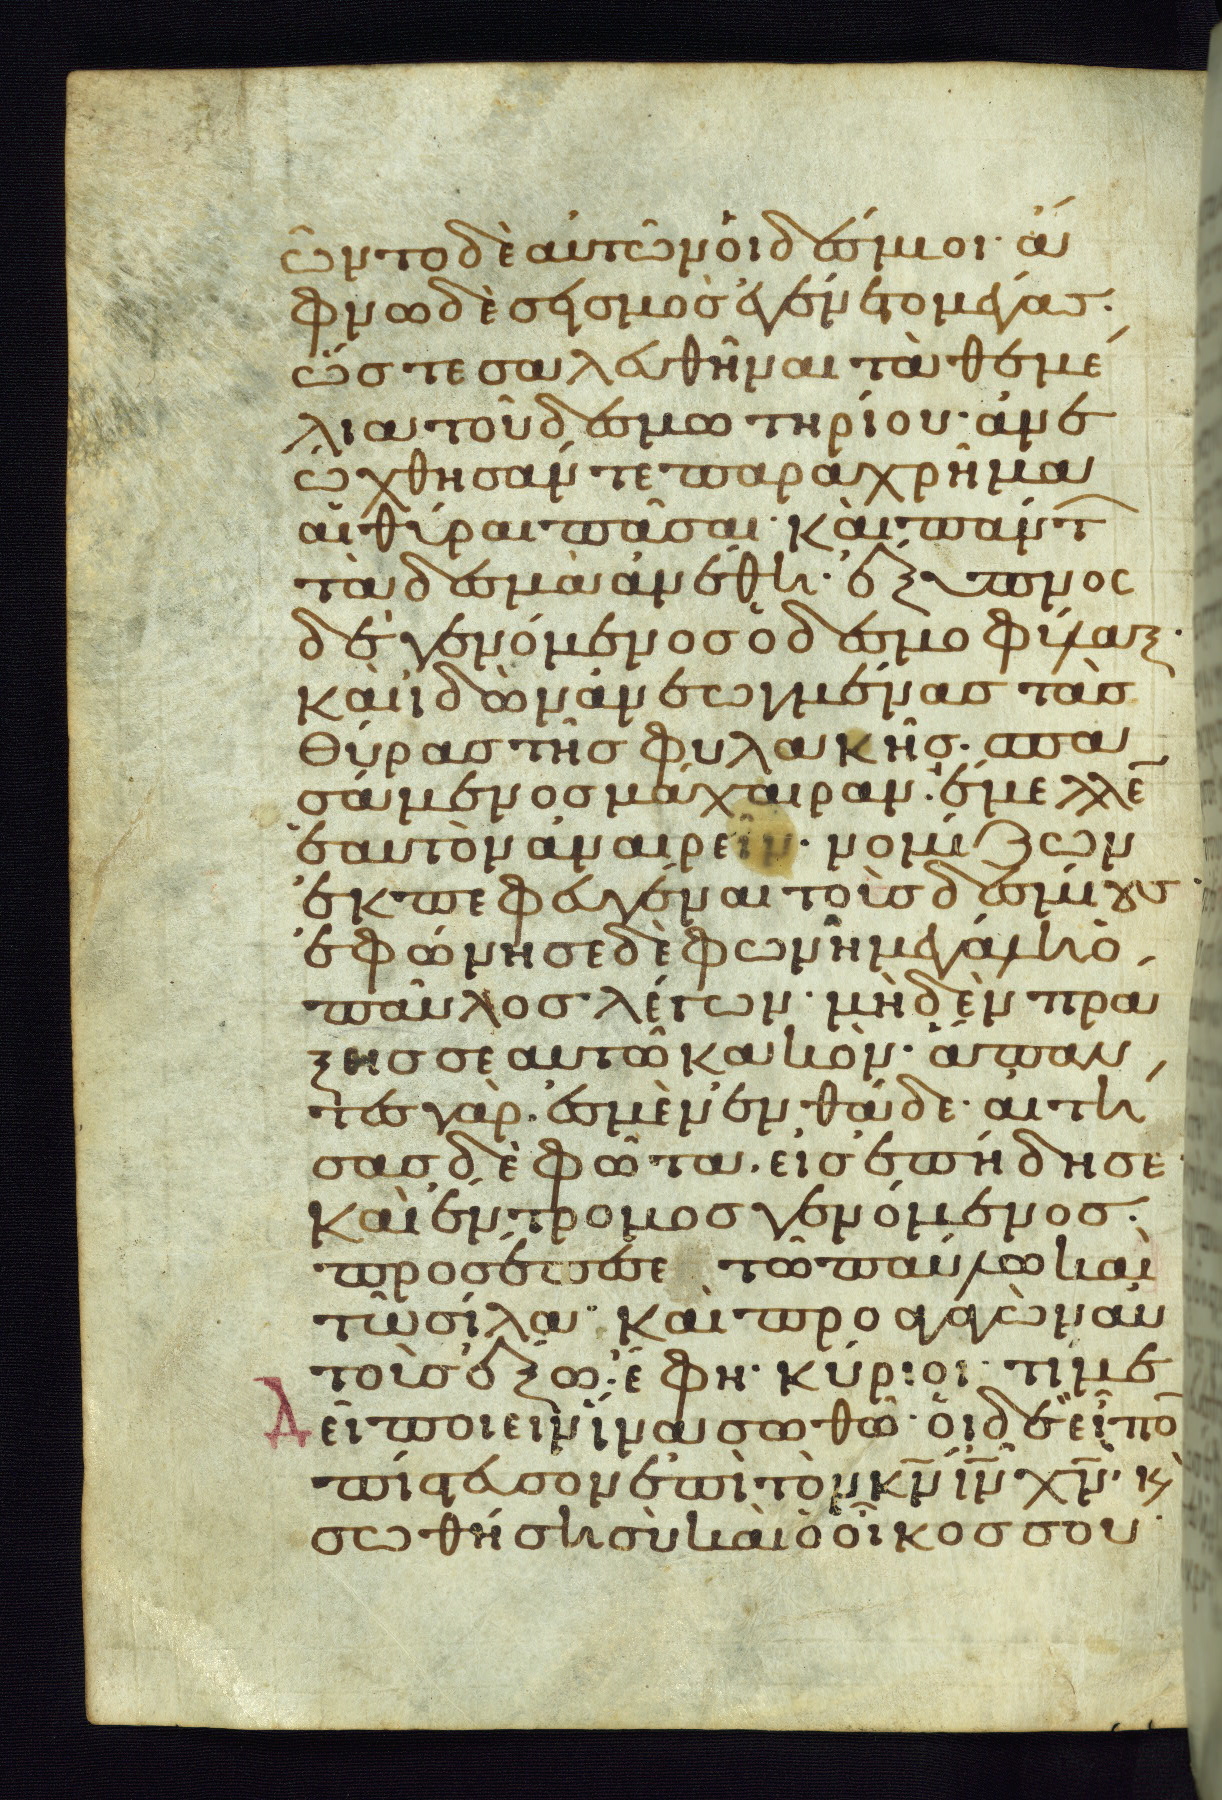 ῶντο δὲ αὐτῶν ὁι δέσμιοι· ἄ
φνω δὲ σεισμὸς ἐγένετο μέγας·
ὥστε σαλευθῆναι τὰ θεμέ
λια τοῦ δεσμωτηρίου· ἀνε
ώχθησάν τε παραχρῆμα
αἱ θύραι πᾶσαι· καὶ πάντ
τὰ δεσμὰ ἀνέθη· ἔξυπνος
δὲ γενόμενος ὁ δεσμοφύλαξ·
καὶ ἰδὼν ἀνεωγμένας τὰς
θύρας τῆς φυλακῆς· σπα
σάμενος μάχαιραν· ἔμελλε
ἑαυτὸν ἀναιρεῖν· νομίζων
ἐκπεφευγέναι τοὺς δεσμίους·
ἐφώνησε δὲ φωνῆ μεγάλη ὁ
παῦλος λέγων· μηδὲν πρα
ξης σεαυτῶ κακόν· ἅπαν
τες γάρ ἐσμὲν ἐνθάδε· αἰτή
σας δὲ φῶτα εἰσεπήδησε
καὶ ἔντρομος γενόμενος·
προσέπεσε τῶ παύλω καὶ
τῶ σίλα· καὶ προαγαγὼν αὐ
τοὺς ἔξω· ἔφη· κύριοι τί με
δεῖ ποιεῖν ἵνα σωθῶ· ὁι δὲ εἶπο̄
πίστευσον ἐπὶ τὸν κ̅ν̅ ι̅ν̅ χ̅ν̅· κ̀
σωθήση σὺ καὶ ὁ οἶκος σου·